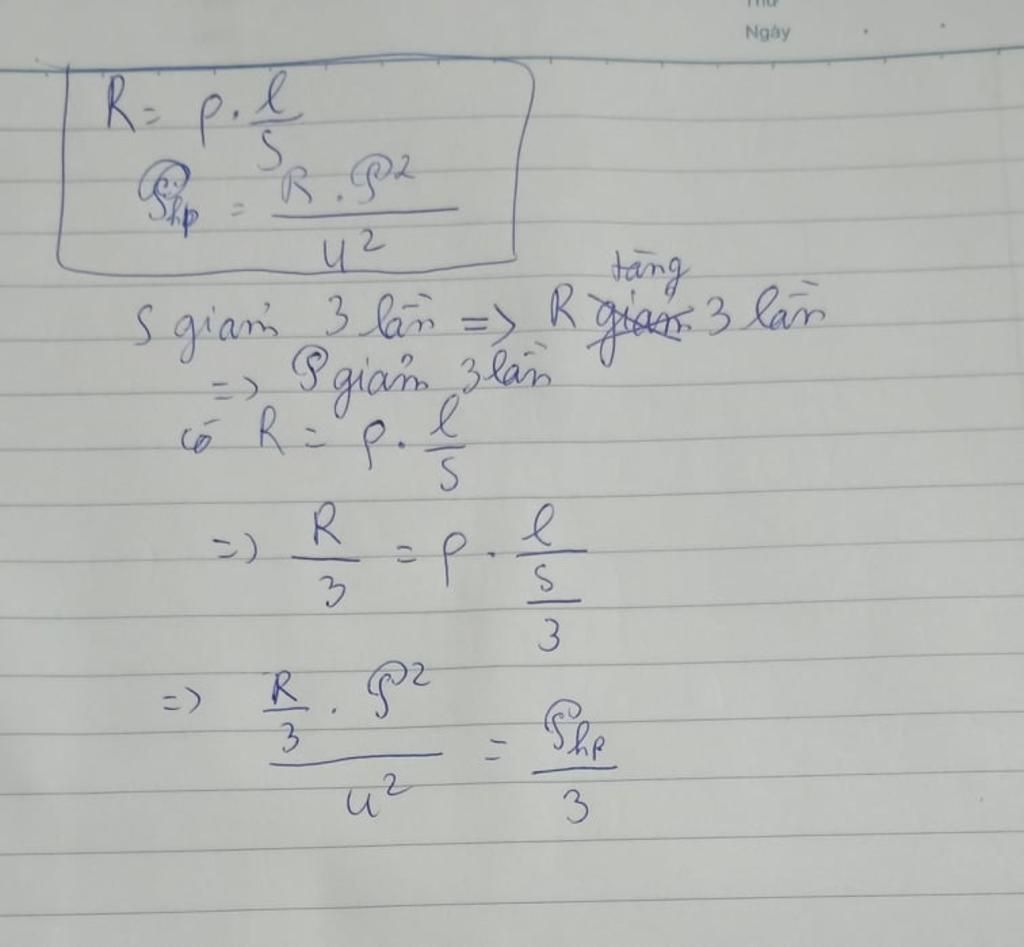 Thứ
Ngày
R = ρ . l/S
𝒫hp = R . 𝒫² / U²
tăng
S giảm 3 lần => R giảm 3 lần
=> 𝒫 giảm 3 lần
có R = ρ . l/S
=> R/3 = ρ . l/(S/3)
=> (R/3 . 𝒫²)/U² = 𝒫hp/3